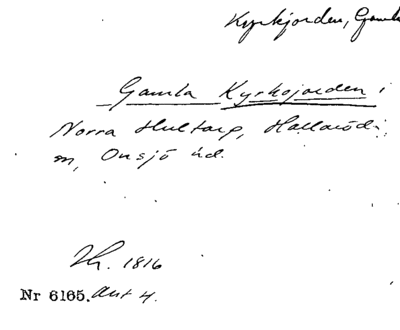 Kyrkjorden, Gamla
Gamla Kyrkojorden i
Norra Hultarp, Hallaröds
m, Onsjö hd.
Zh. 1816
Nr 6165. Akt 4.